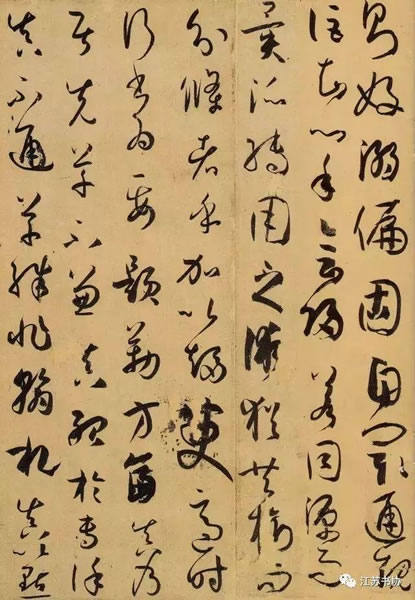 則好溺偏固自閡通規
詎知心手會歸若同源而
異派轉用之術猶共樹而
分條者乎加以趨變適時
行書為要題勒方畐真乃
居先草不兼真殆於專謹
真不通草殊非翰札真以點
江苏书坊